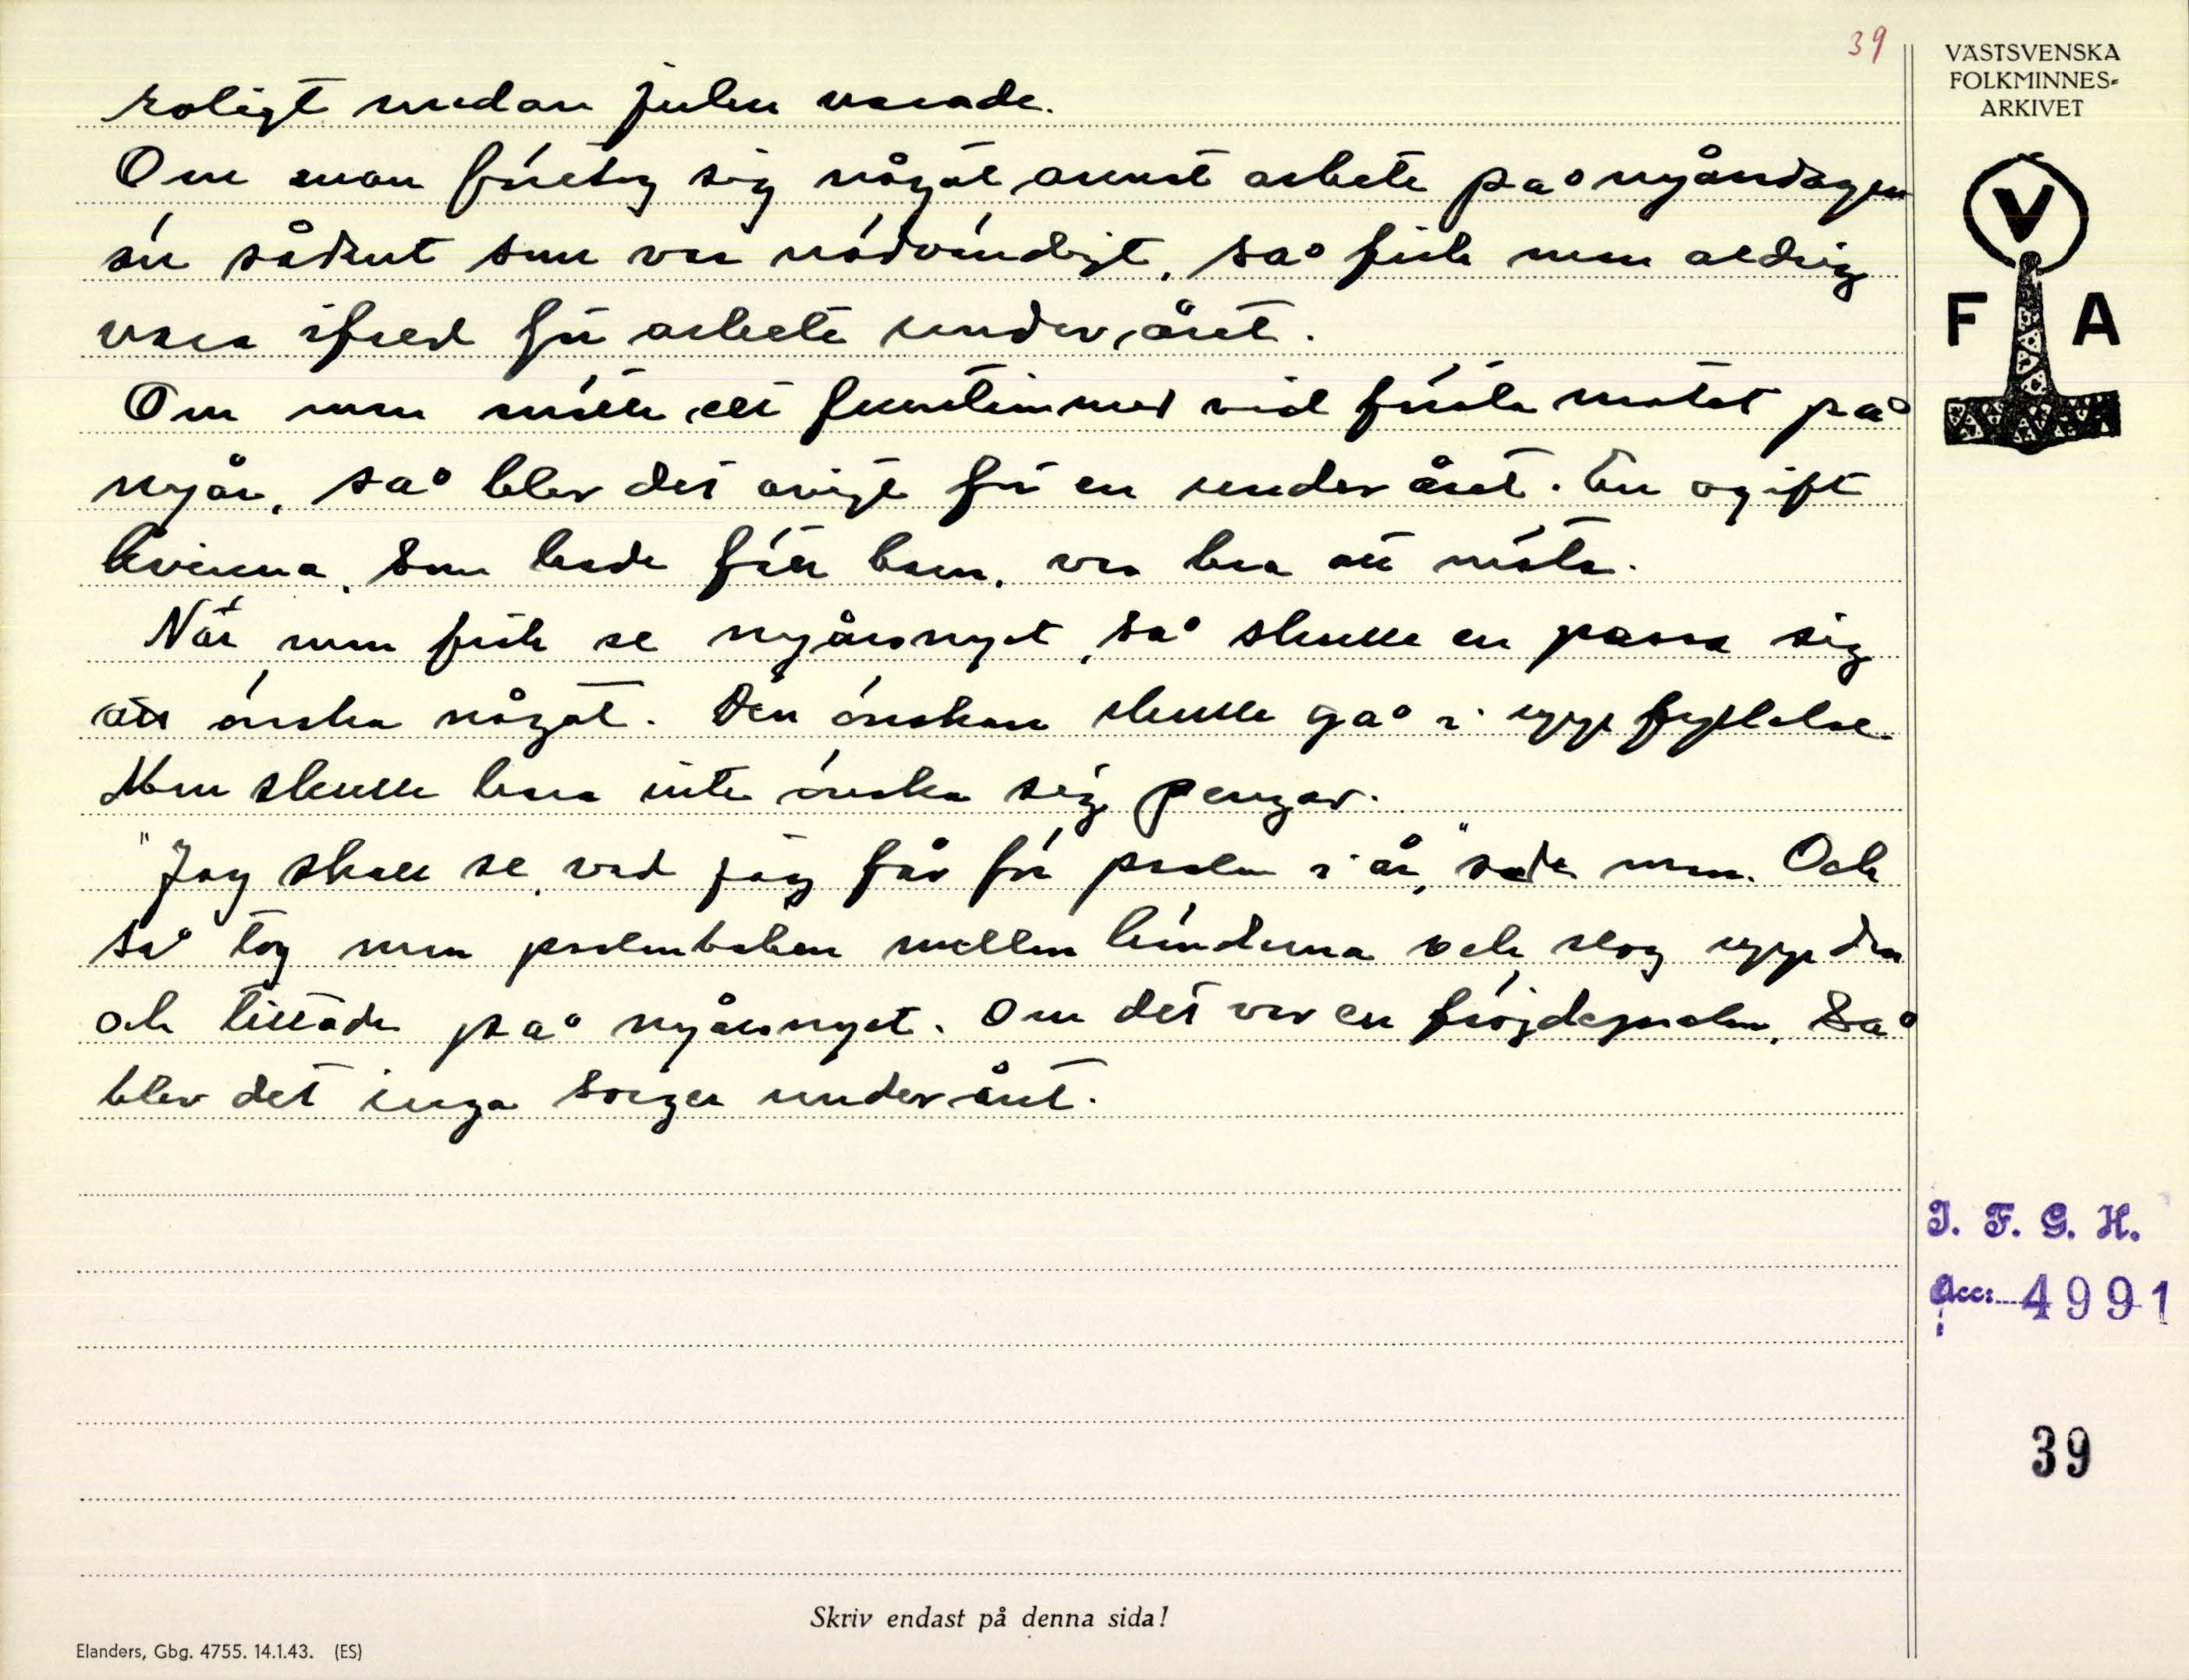 39
VÄSTSVENSKA
FOLKMINNES-
ARKIVET
V
F A
roligt medan julen varade.
Om man företog sig något annat arbete på nyårsdagen
än sådant som var nödvändigt, så fick man aldrig
vara ifred för arbete under året.
Om man mötte ett fruntimmer vid första mötet på
nyår, så blev det avigt för en under året. En ogift
kvinna, som hade fått barn, var bra att möta.
När man fick se nyårsnyet, så skulle en passa sig
att önska något. Den önskan skulle gå i uppfyllelse.
Man skulle bara inte önska sig pengar.
"Jag skall se, vad jag får för psalm i år," sade man. Och
så tog man psalmboken mellan händerna och slog upp den
och tittade på nyårsnyet. Om det var en fröjdepsalm, så
blev det inga sorger under året.
I. F. G. H.
Acc: 4991
39
Skriv endast på denna sida!
Elanders, Gbg. 4755. 14.1.43. (ES)